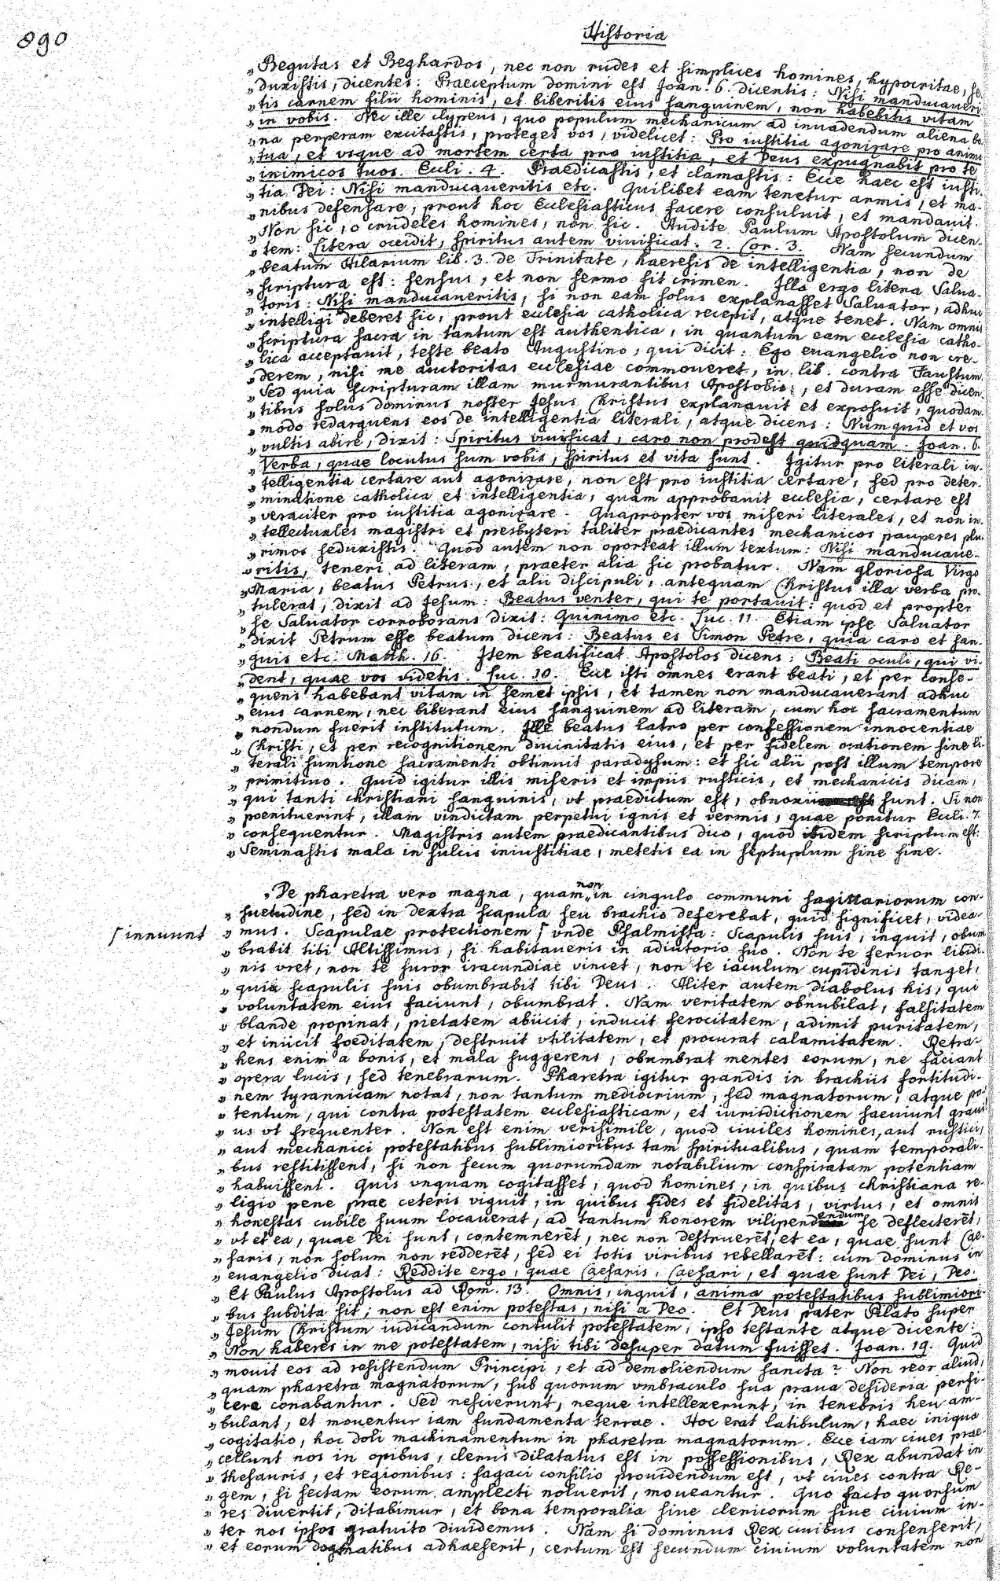 890
Historia
„Begutas et Beghardos, nec non rudes et simplices homines, hypocritae, se
„duxistis, dicentes: Praeceptum domini est Joan. 6. dicentis: Nisi manducaveri
„tis carnem filii hominis, et biberitis eius sanguinem, non habebitis vitam
„in vobis. Nec ille clypeus, quo populum mechanicum ad invadendum aliena bo
„na perperam excitastis, proteget vos, videlicet: Pro iustitia agonizare pro anima
„tua, et usque ad mortem certa pro iustitia, et Deus expugnabit pro te
„inimicos tuos. Eccli. 4. Praedicastis, et clamastis: Ecce haec est iusti-
„tia Dei: Nisi manducaveritis etc. Quilibet eam tenetur armis, et ma-
„nibus defensare, prout hoc Ecclesiasticus facere consuluit, et mandavit.
„Non sic, o crudeles homines, non sic. Audite Paulum Apostolum dicen-
„tem: Litera occidit, spiritus autem vivificat. 2. Cor. 3. Nam secundum
„beatum Hilarium lib. 3. de Trinitate, haeresis de intelligentia, non de
„scriptura est: sensus, et non sermo fit crimen. Illa ergo litera Salva-
„toris: Nisi manducaveritis, si non eam solus explanasset Salvator, adhuc
„intelligi deberet sic, prout ecclesia catholica recepit, atque tenet. Nam omnis
„scriptura sacra in tantum est authentica, in quantum eam ecclesia catho-
„lica acceptavit, teste beato Augustino, qui dicit: Ego euangelio non cre-
„derem, nisi me auctoritas ecclesiae commoveret, in lib. contra Faustum.
„Sed quia scripturam illam murmurantibus Apostolis, et duram esse dicen
„tibus solus dominus noster Jesus Christus explanavit et exposuit, quodam-
„modo redarguens eos de intelligentia literali, atque dicens: Numquid et vos
„vultis abire, dixit: Spiritus vivificat, caro non prodest quidquam. Joan. 6.
„Verba, quae locutus sum vobis, spiritus et vita sunt. Igitur pro literali in-
„telligentia certare aut agonizare, non est pro iustitia certare, sed pro deter-
„minatione catholica et intelligentia, quam approbavit ecclesia, certare est
„veraciter pro iustitia agonizare. Quapropter vos miseri literales, et non in-
„tellectuales magistri et presbyteri taliter praedicantes mechanicos pauperes plu-
„rimos seduxistis. Quod autem non oporteat illum textum: Nisi manducave-
„ritis, teneri ad literam, praeter alia sic probatur. Nam gloriosa Virgo
„Maria, beatus Petrus, et alii discipuli, antequam Christus illa verba pro-
„tulerat, dixit ad Jesum: Beatus venter, qui te portavit: quod et propter
„se Salvator corroborans dixit: Quinimo etc. Luc. 11. Etiam ipse Salvator
„dixit Petrum esse beatum dicens: Beatus es Simon Petre, quia caro et san-
„guis etc. Matth. 16. Item beatificat Apostolos dicens: Beati oculi, qui vi-
„dent, quae vos videtis. Luc. 10. Ecce isti omnes erant beati, et per conse-
„quens habebant vitam in semet ipsis, et tamen non manducaverant adhuc
„eius carnem, nec biberant eius sanguinem ad literam, cum hoc sacramentum
„nondum fuerit institutum. Ille beatus latro per confessionem innocentiae
„Christi, et per recognitionem divinitatis eius, et per fidelem orationem sine li-
„terali sumtione sacramenti obtinuit paradysum: et sic alii post illum tempore
„primitivo. Quid igitur illis miseris et impiis rusticis, et mechanicis dicam,
„qui tanti christiani sanguinis, ut praedictum est, obnoxii sunt. Si non
„poenituerint, illam vindictam perpetui ignis et vermis, quae ponitur Eccli. 7.
„consequentur. Magistris autem praedicantibus dico, quod ibidem scriptum est:
„Seminastis mala in sulcis iniustitiae, metetis ea in septuplum sine fine.
„De pharetra vero magna, quam non in cingulo communi sagittariorum con-
„suetudine, sed in dextra scapula seu brachio deferebat, quid significet, videa-
„mus. Scapulae protectionem ſ unde Psalmista: Scapulis suis, inquit, obum
ſ innuunt
„brabit tibi Altissimus, si habitaveris in adiutorio suo. Non te fervor libidi-
„nis uret, non te furor iracundiae vincet, non te iaculum cupidinis tanget,
„quia scapulis suis obumbrabit tibi Deus. Aliter autem diabolus his, qui
„voluntatem eius faciunt, obumbrat. Nam veritatem obnubilat, falsitatem
„blande propinat, pietatem abiicit, inducit ferocitatem, adimit puritatem,
„et iniicit foeditatem, destruit utilitatem, et procurat calamitatem. Retra-
„hens enim a bonis, et mala suggerens, obumbrat mentes eorum, ne faciant
„opera lucis, sed tenebrarum. Pharetra igitur grandis in brachiis fortitudi-
„nem tyrannicam notat, non tantum mediocrium, sed magnatorum, atque po-
„tentum, qui contra potestatem ecclesiasticam, et iurisdictionem saeviunt gravi
„us ut frequenter. Non est enim verisimile, quod civiles homines, aut rustici,
„aut mechanici potestatibus sublimioribus tam spiritualibus, quam temporali-
„bus restitissent, si non secum quorumdam notabilium conspiratam potentiam
„habuissent. Quis unquam cogitasset, quod homines, in quibus christiana re-
„ligio pene prae ceteris viguit, in quibus fides et fidelitas, virtus, et omnis
„honestas cubile suum locaverat, ad tantum honorem vilipendendum se deflecterēt,
„ut et ea, quae Dei sunt, contemnerēt, nec non destruerēt, et ea, quae sunt Cae-
„saris, non solum non redderēt, sed ei totis viribus rebellarēt: cum dominus in
„euangelio dicat: Reddite ergo, quae Caesaris, Caesari, et quae sunt Dei, Deo.
„Et Paulus Apostolus ad Rom. 13. Omnis, inquit, anima potestatibus sublimiori-
„bus subdita sit, non est enim potestas, nisi a Deo. Et Deus pater Pilato super
„Jesum Christum iudicandum contulit potestatem, ipso testante atque dicente:
„Non haberes in me potestatem, nisi tibi desuper datum fuisset. Joan. 19. Quid
„movit eos ad resistendum Principi, et ad demoliendum sancta? Non reor aliud,
„quam pharetra magnatorum, sub quorum umbraculo sua prava desideria perfi-
„cere conabantur. Sed nescierunt, neque intellexerunt, in tenebris heu am-
„bulant, et moventur iam fundamenta terrae. Hoc erat latibulum, haec iniqua
„cogitatio, hoc doli machinamentum in pharetra magnatorum. Ecce iam cives prae-
„cellunt nos in opibus, clerus dilatatus est in possessionibus, Rex abundat in
„thesauris, et regionibus: sagaci consilio providendum est, ut cives contra Re-
„gem, si sectam eorum amplecti noluerit, moveantur. Quo facto quorsum
„res divertit, ditabimur, et bona temporalia sive clericorum sive civium in-
„ter nos ipsos gratuito dividemus. Nam si dominus Rex civibus consenserit,
„et eorum dogmatibus adhaeserit, certum est secundum civium voluntatem non